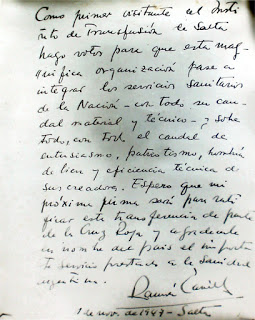 Como primer visitante al Insti
tuto de Transfusión de Salta
hago votos para que esta mag-
nífica organización pase a
integrar los servicios sanitarios
de la Nación - con todo su cau-
dal material y técnico - y sobre
todo, con todo el caudal de
entusiasmo, patriotismo, hombría
de bien y eficiencia técnica de
sus creadores. Espero que mi
próxima firma será para rati
ficar esta transferencia de parte
de la Cruz Roja y agradecerle
en nombre del país el importan
te servicio prestado a la sanidad
argentina.
Ramón Carrillo
1 de nov. de 1947 - Salta